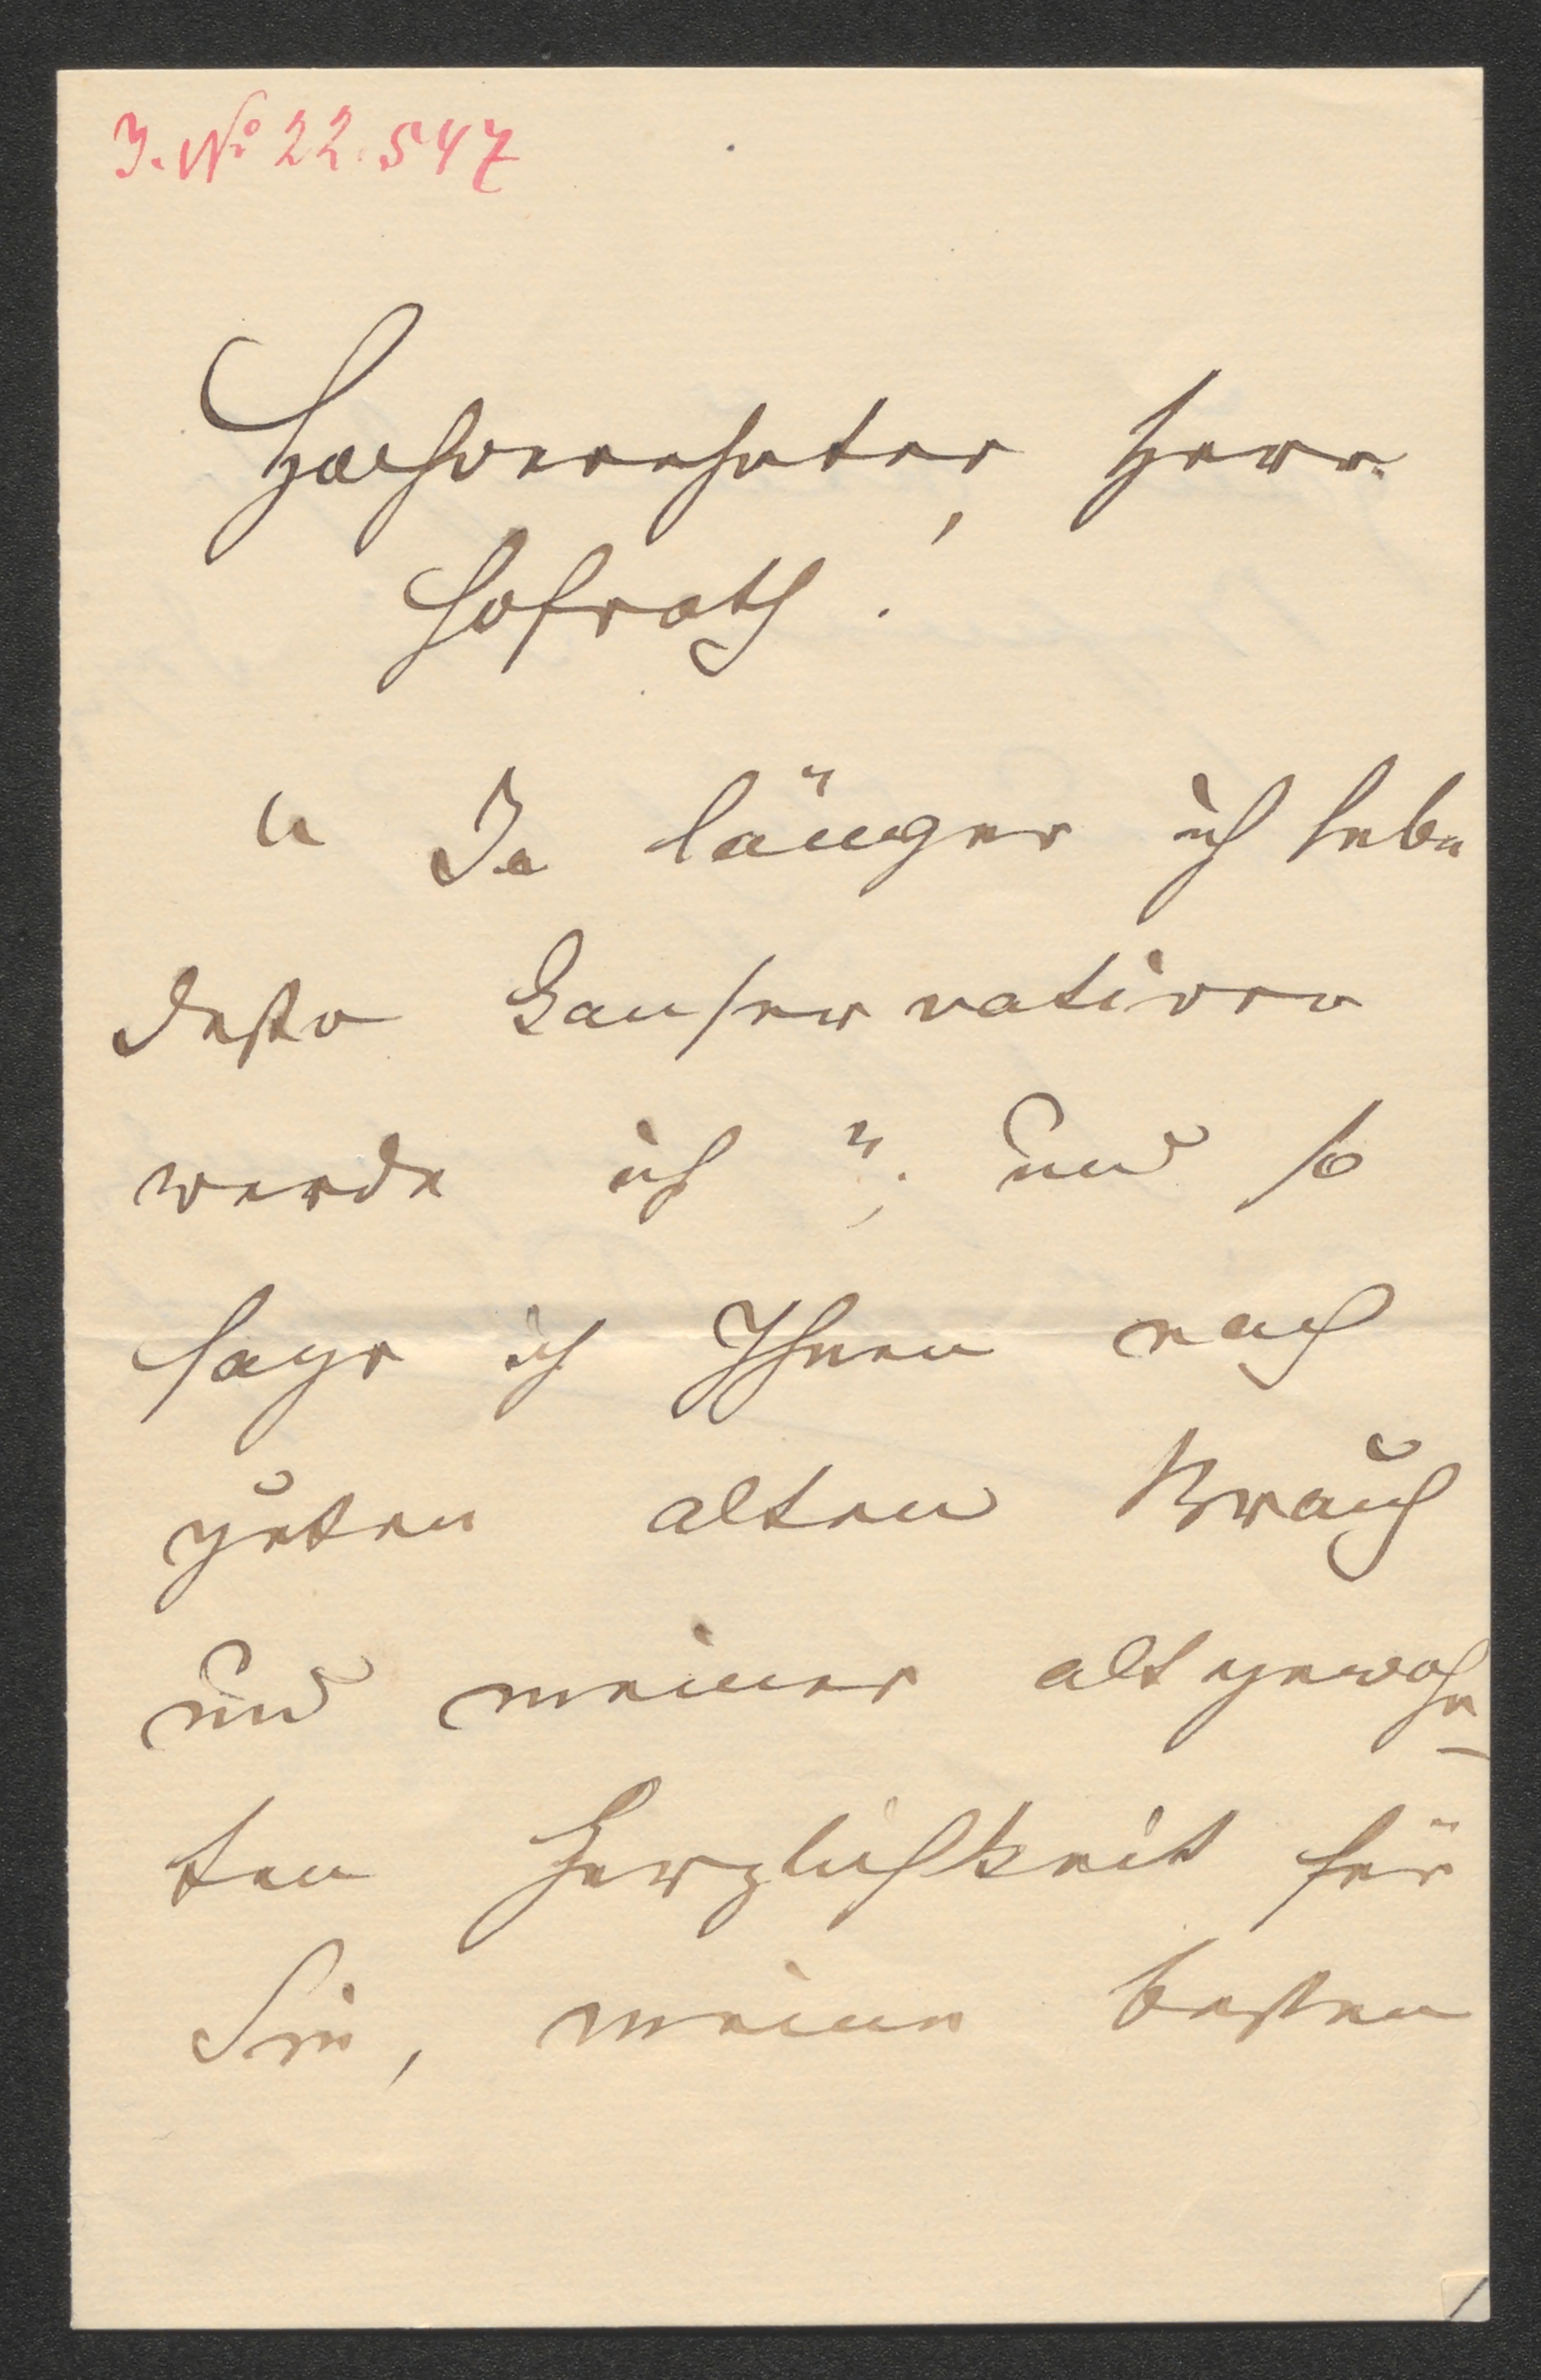 J. No 22.547
Hochverehrter, Herr
Hofrath.
" Je länger ich lebe
desto konservativer
werde ich "; und so
sage ich Ihnen nach
guten alten Brauch
und meiner altgewohn-
ten Herzlichkeit für
Sie, meine besten
1